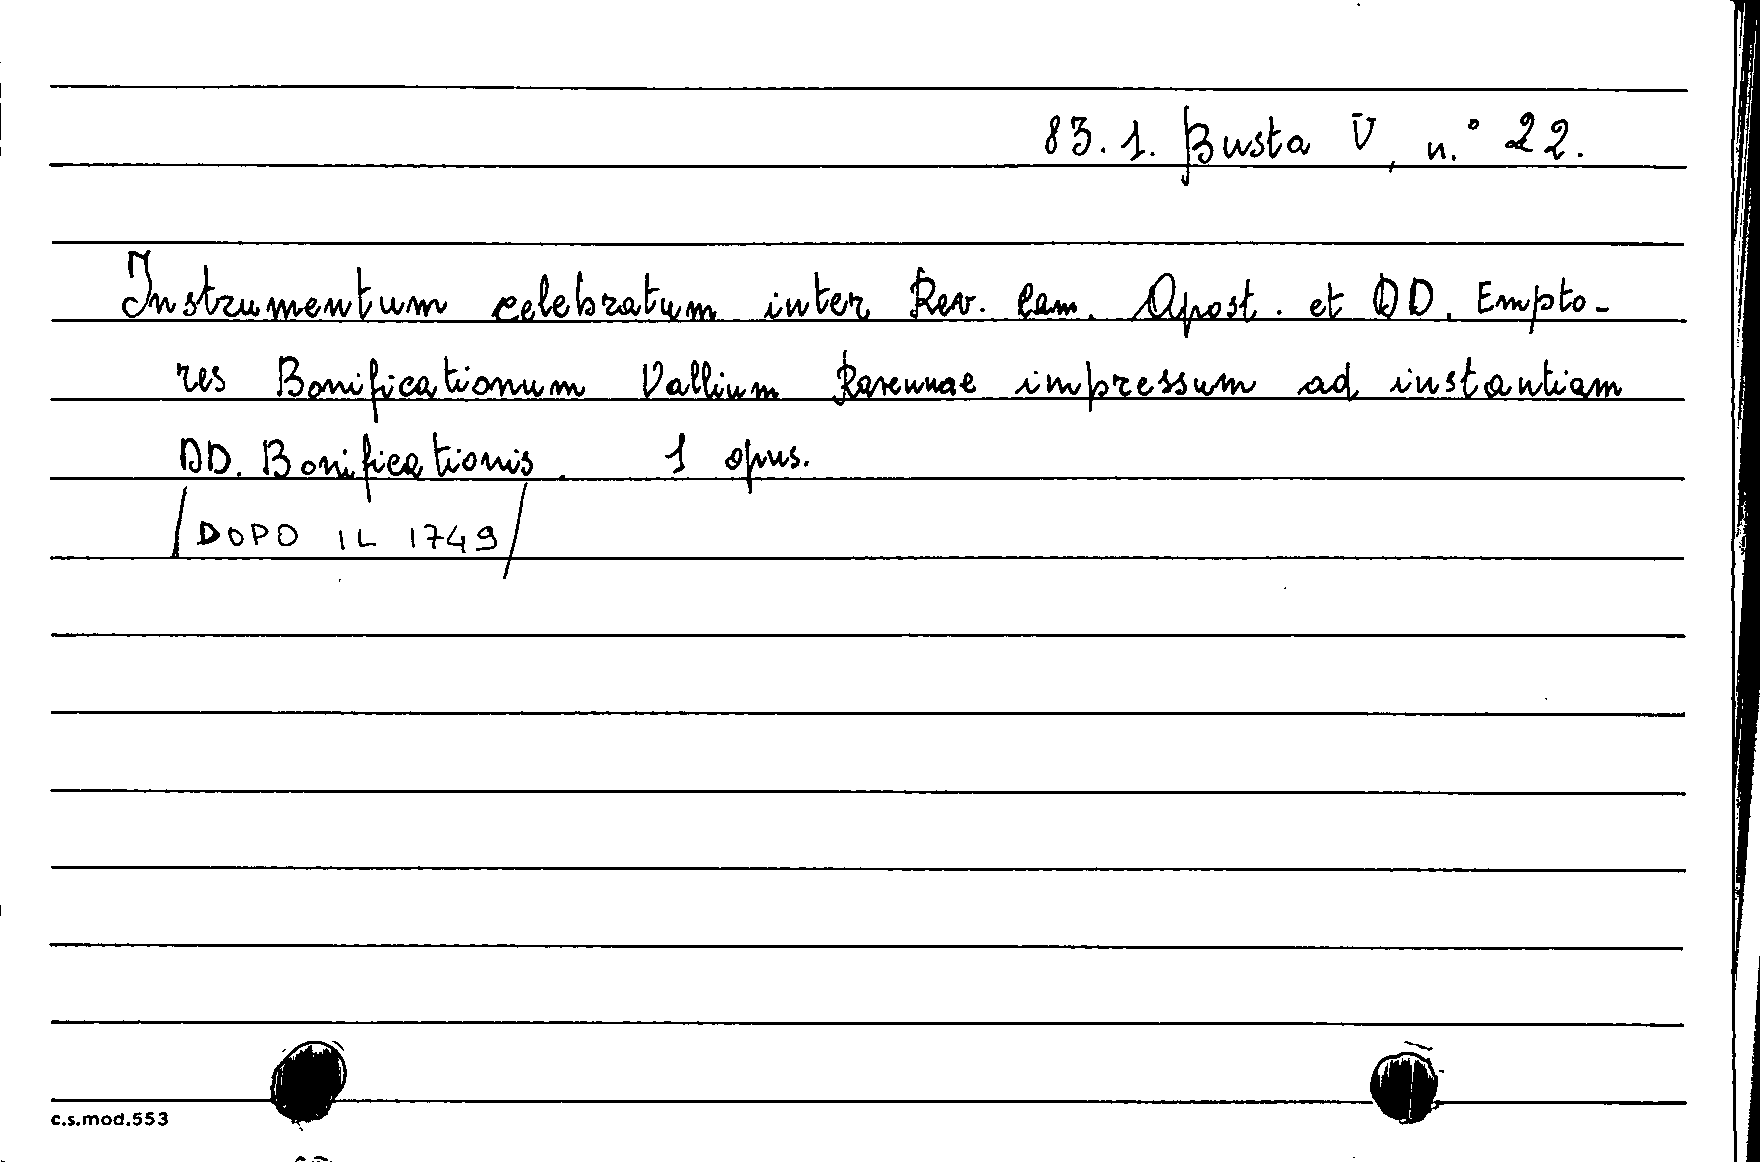 83.1. Busta V, n.° 22.
Instrumentum celebratum inter Rev. Cam. Apost. et DD. Empto-
res Bonificationum Vallium Ravennae impressum ad instantiam
DD. Bonificationis. 1 opus.
/DOPO IL 1749/
c.s.mod.553